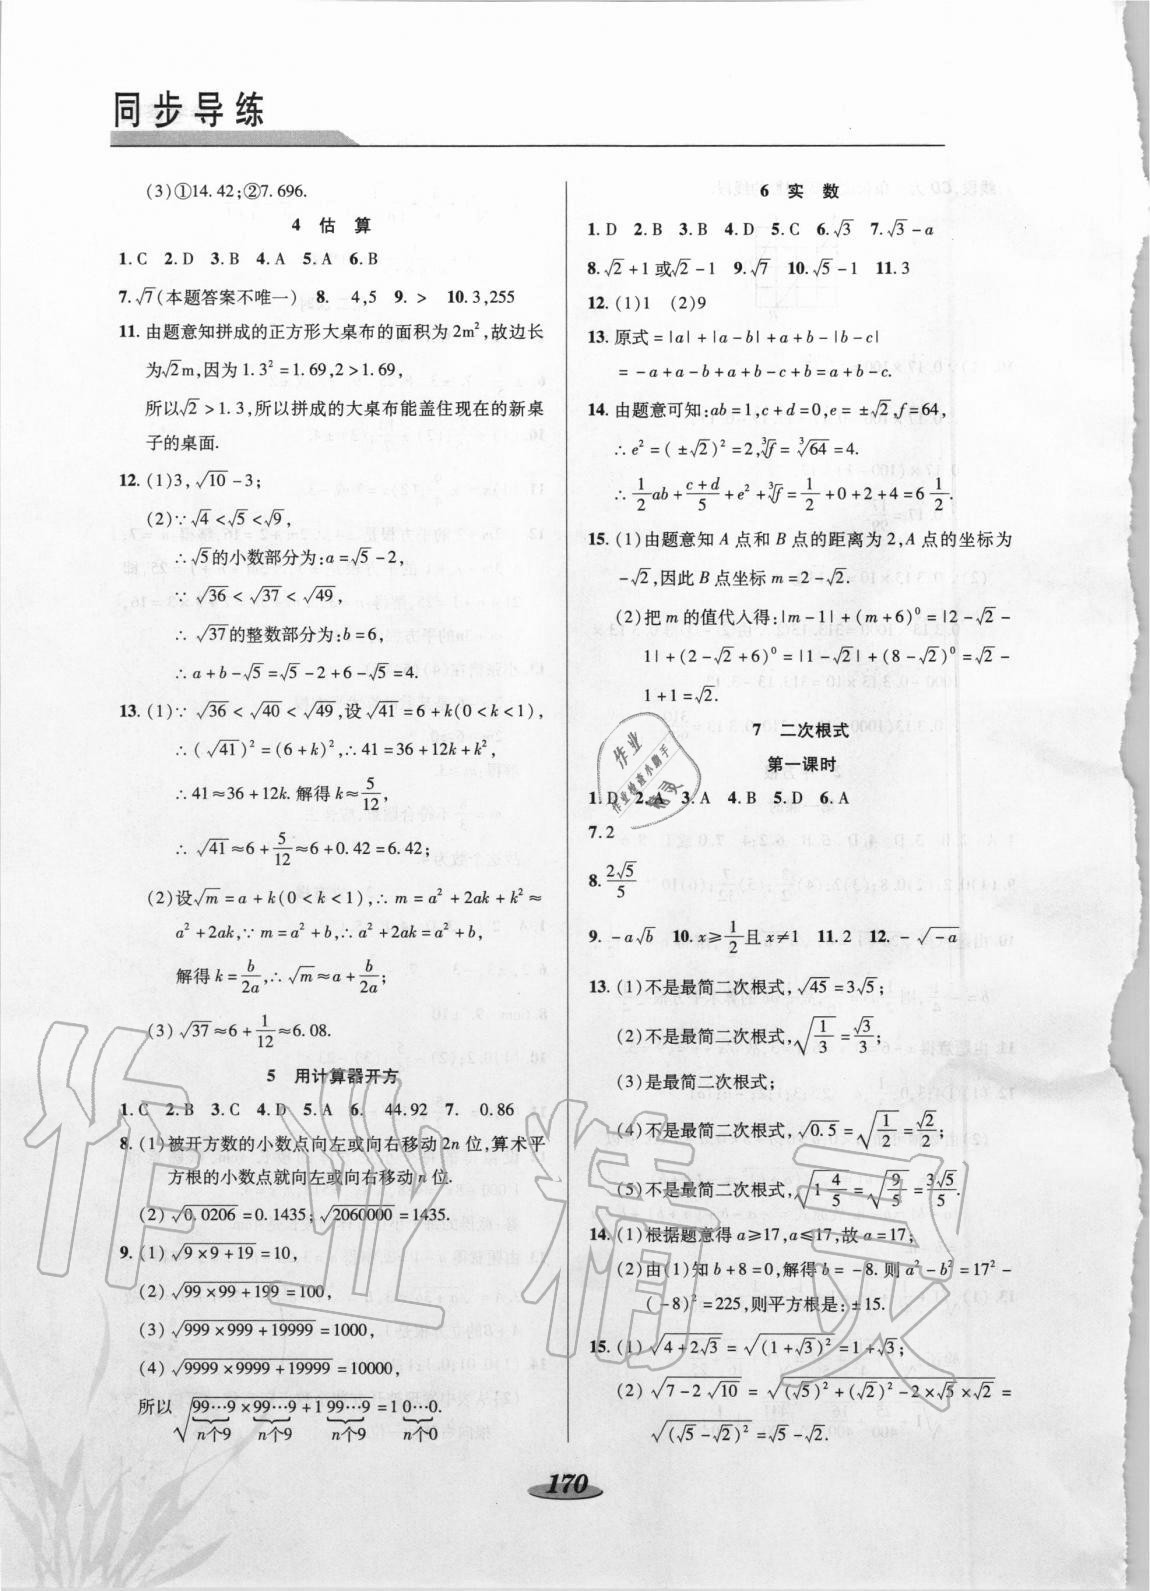 同步导练
(3)①14.42;②7.696.
4 估 算
1.C 2.D 3.B 4.A 5.A 6.B
7.√7(本题答案不唯一) 8. 4,5 9. > 10.3,255
11.由题意知拼成的正方形大桌布的面积为2m²,故边长
为√2m,因为1.3²=1.69,2>1.69,
所以√2>1.3,所以拼成的大桌布能盖住现在的新桌
子的桌面.
12.(1)3,√10-3;
(2)∵√4<√5<√9,
∴√5的小数部分为:a=√5-2,
∵√36<√37<√49,
∴√37的整数部分为:b=6,
∴a+b-√5=√5-2+6-√5=4.
13.(1)∵√36<√40<√49,设√41=6+k(0<k<1),
∴(√41)²=(6+k)²,∴41=36+12k+k²,
∴41≈36+12k.解得k≈5/12,
∴√41≈6+5/12≈6+0.42=6.42;
(2)设√m=a+k(0<k<1),∴m=a²+2ak+k²≈
a²+2ak,∵m=a²+b,∴a²+2ak=a²+b,
解得k=b/2a,∴√m≈a+b/2a;
(3)√37≈6+1/12≈6.08.
5 用计算器开方
1.C 2.B 3.C 4.D 5.A 6. 44.92 7. 0.86
8.(1)被开方数的小数点向左或向右移动2n位,算术平
方根的小数点就向左或向右移动n位.
(2)√0.0206=0.1435;√2060000=1435.
9.(1)√(9×9+19)=10,
(2)√(99×99+199)=100,
(3)√(999×999+19999)=1000,
(4)√(9999×9999+19999)=10000,
所以√(99…9×99…9+199…9)=10…0.
n个9 n个9 n个9 n个0
6 实 数
1.D 2.B 3.B 4.D 5.C 6.√3 7.√3-a
8.√2+1或√2-1 9.√7 10.√5-1 11.3
12.(1)1 (2)9
13.原式=|a|+|a-b|+a+b-|b-c|
=-a+a-b+a+b-c+b=a+b-c.
14.由题意可知:ab=1,c+d=0,e=±√2,f=64,
∴e²=(±√2)²=2,∛f=∛64=4.
∴1/2ab+(c+d)/5+e²+∛f=1/2+0+2+4=6 1/2.
15.(1)由题意知A点和B点的距离为2,A点的坐标为
-√2,因此B点坐标m=2-√2.
(2)把m的值代入得:|m-1|+(m+6)⁰=|2-√2-
1|+(2-√2+6)⁰=|1-√2|+(8-√2)⁰=√2-
1+1=√2.
7 二次根式
第一课时
1.D 2.A 3.A 4.B 5.D 6.A
7.2
8.2√5/5
9.-a√b 10.x≥1/2且x≠1 11.2 12.-√-a
13.(1)不是最简二次根式,√45=3√5;
(2)不是最简二次根式,√(1/3)=√3/3;
(3)是最简二次根式;
(4)不是最简二次根式,√0.5=√(1/2)=√2/2;
(5)不是最简二次根式,√(1 4/5)=√(9/5)=3√5/5.
14.(1)根据题意得a≥17,a≤17,故a=17;
(2)由(1)知b+8=0,解得b=-8.则a²-b²=17²-
(-8)²=225,则平方根是:±15.
15.(1)√(4+2√3)=√((1+√3)²)=1+√3;
(2)√(7-2√10)=√((√5)²+(√2)²-2×√5×√2)=
√((√5-√2)²)=√5-√2.
170
作业精灵
作业
作业检查小助手
精灵